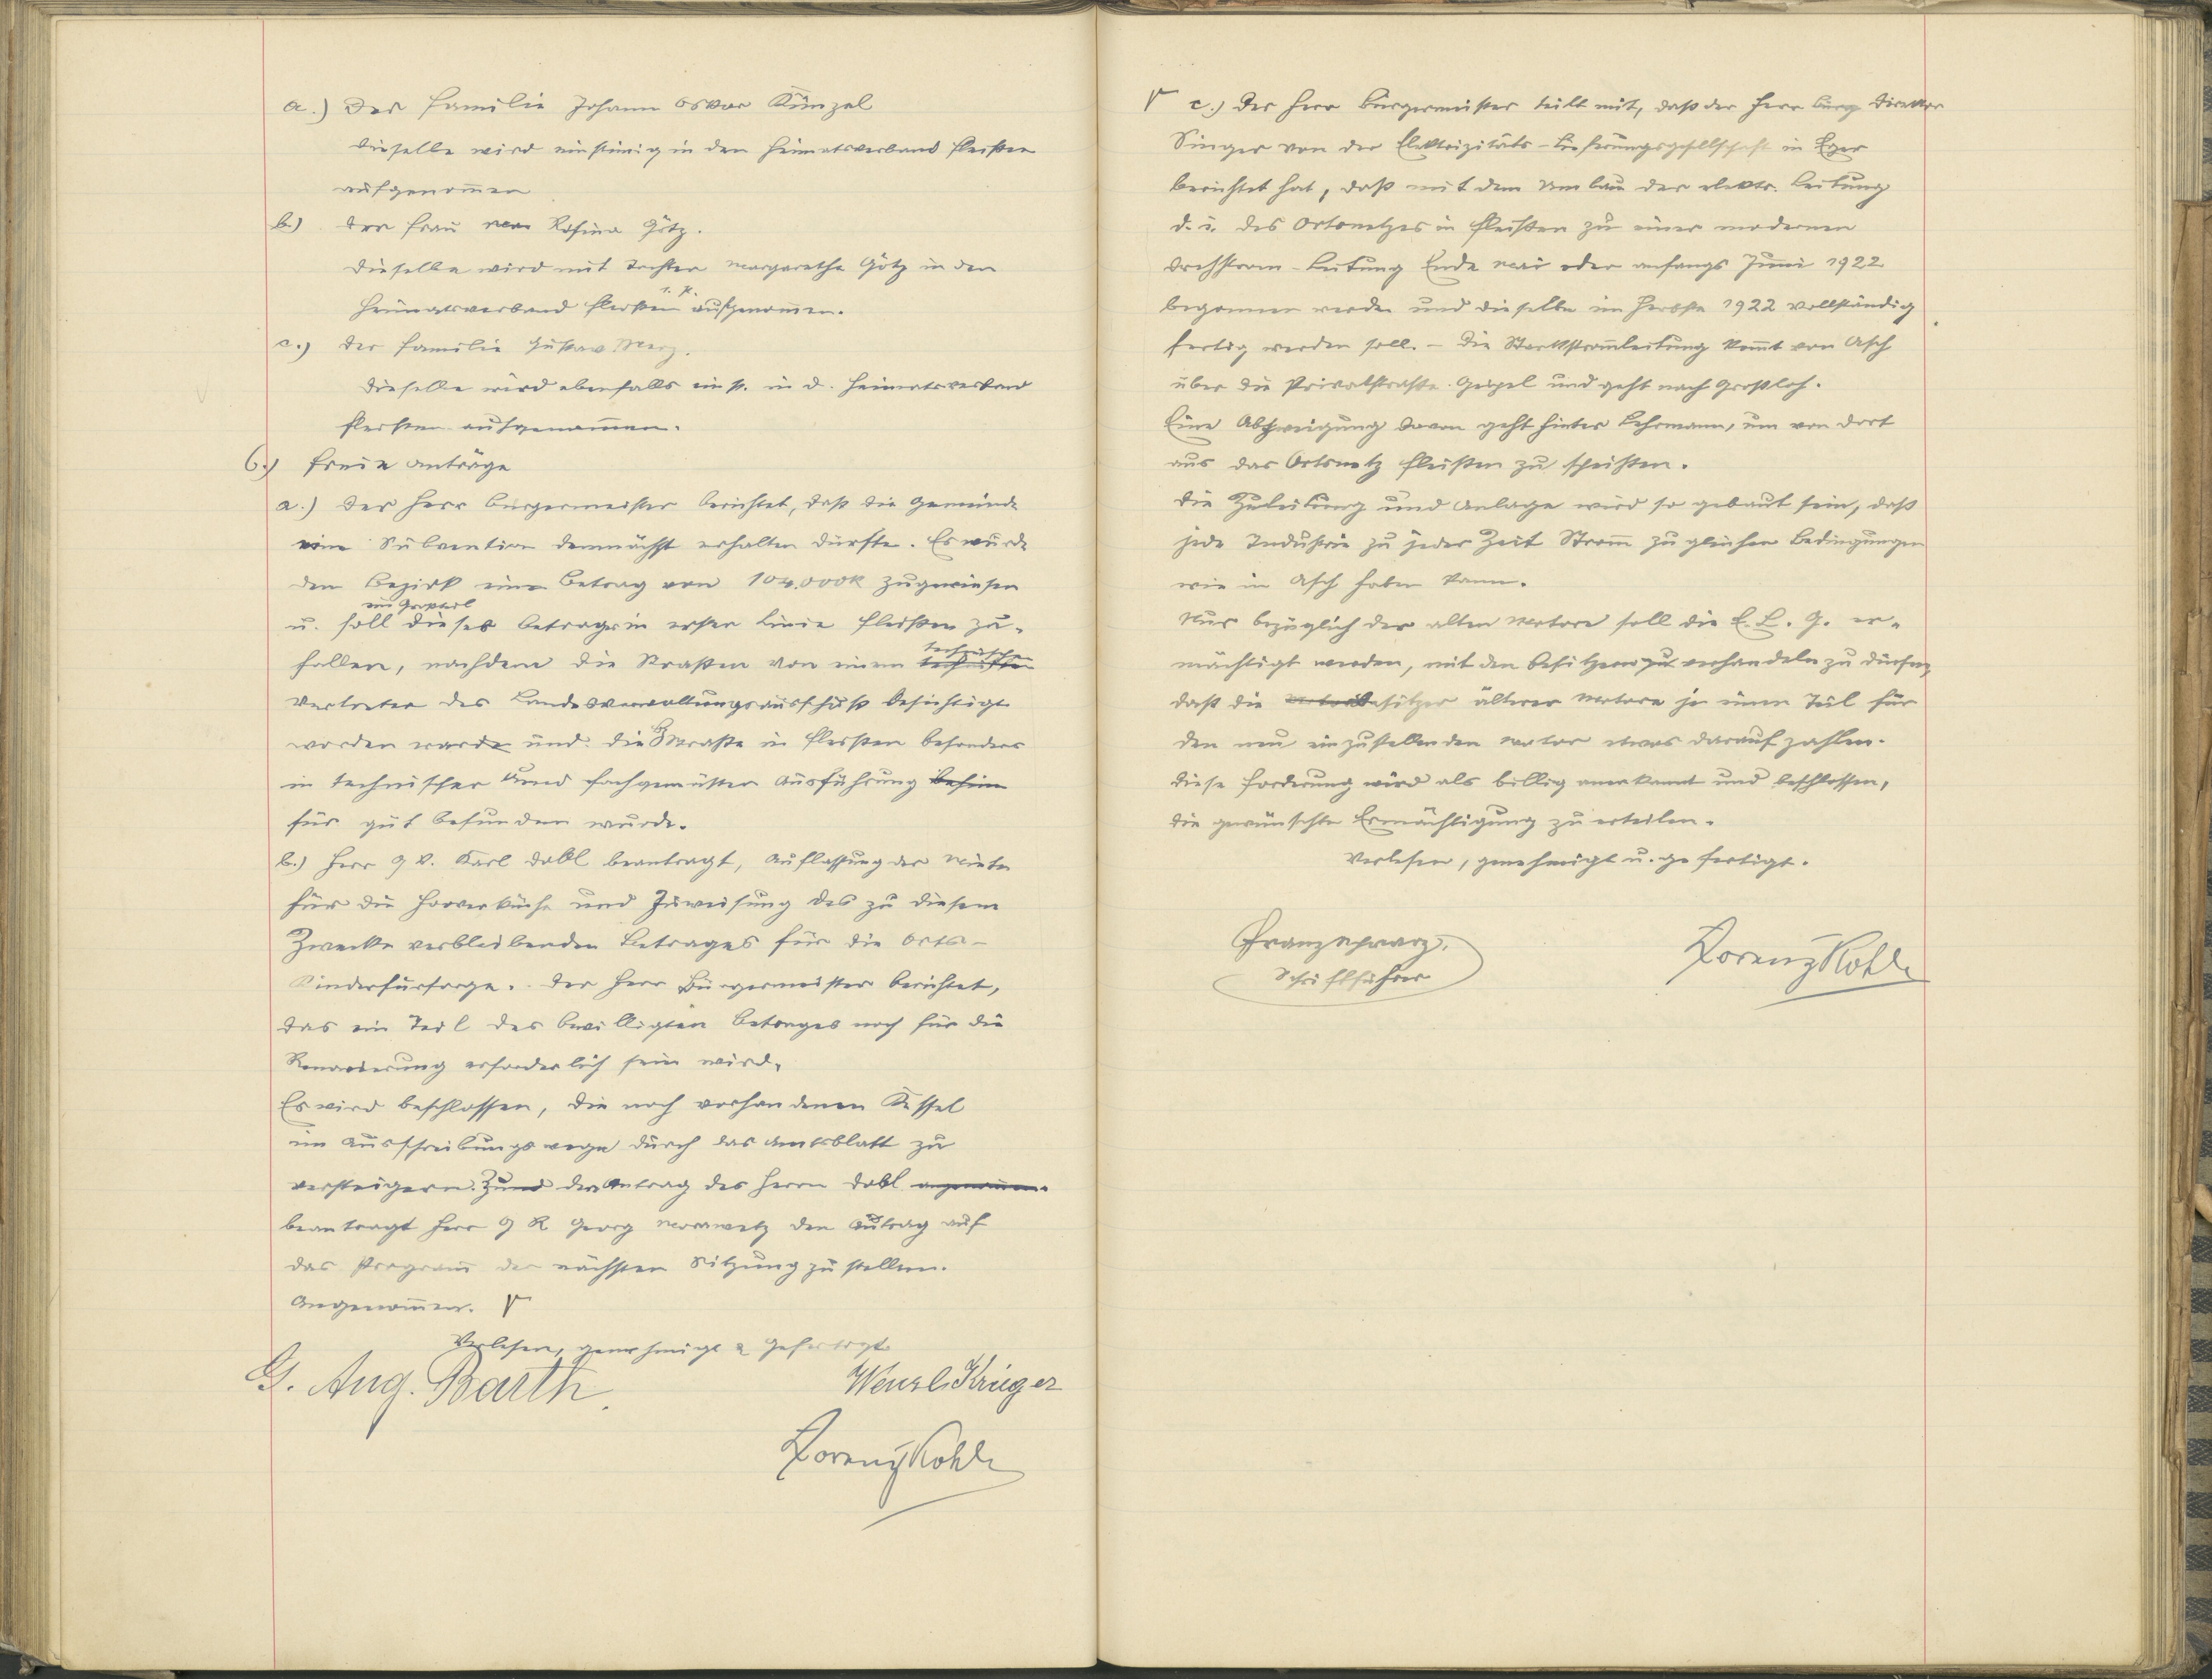 a.) Der Familie Johann Oskar Künzel
Dieselbe wird einstimig in den Heimatsverband Fleißen
aufgenommen
b.) der Frau Rosina Götz.
Dieselbe wird mit Tochter Margarethe Götz in den
Heimatsverband Fleißen e. st. aufgenommen.
c.) der Familie Gustav Merz.
Dieselbe wird ebenfalls einst. in d. Heimatsverband
Fleißen aufgenommen.
6.) Freie Anträge
a.) Der Herr Bürgermeister berichtet, daß die Gemeinde
eine Subvention demnächst erhalten dürfte. Es wurde
den Bezirk eine Betrag von 104.000K zugewiesen
u. soll ein Großteil dieses Betrages in erster Linie Fleißen zu-
fallen, nachdem die Straßen von einem technischen
Vertreter des Landesverwaltungsausschuß besichtigt
worden und die Straße in Fleißen besonders
in technischer und fachgemäßer Ausführung
für gut befunden wurde.
b.) Herr G V. Karl Dobl beantragt, Auflassung der Miete
für die Hooverküche und Zuweisung des zu diesem
Zwecke verbleibenden Betrages für die Orts-
Kinderfürsorge. Der Herr Bürgermeister berichtet,
das ein Teil des bewilligten Betrages noch für die
Renovierung erforderlich sein wird.
Es wird beschlossen, die noch vorhandenen Kessel
im Ausschreibungswege durch das Amtsblatt zu
versteigern. Zu den Antrag des Herrn Dobl
beantragt Herr G R Georg Morawetz den Antrag auf
das Program der nächsten Sitzung zu stellen.
Angenommen.
Verlesen, genehmigt & gefertigt
G. Aug. Barth. Wenzl Krieger
Lorenz Kohl
c.) Der Herr Bürgermeister teilt mit, daß der Herr Direktor
Singer von der Elektrizitäts-Lieferungsgesellschaft in Eger
berichtet hat, daß mit dem Umbau der elektr. Leitung
d. i. des Ortsnetzes in Fleißen zu einer modernen
Drehstrom-Leitung Ende Mai oder anfangs Juni 1922
begonnen werde und dieselbe im Herbste 1922 vollständig
fertig werden soll. – Die Starkstromleitung kommt von Asch
über die Privatstraße Geipel und geht nach Großloh.
Eine Abzweigung davon geht hinter Lehrmann, um von dort
aus das Ortsnetz Fleißen zu speisten.
Die Zuleitung und Anlage wird so gebaut sein, daß
jede Industrie zu jeder Zeit Strom zu gleichen Bedingungen
wie in Asch haben kann.
Nur bezüglich der alten Motore soll die E. L. G. er-
mächtigt werden, mit den Besitzern zu verhandeln zu dürfen,
daß die Besitzer älterer Motore je einen Teil für
den neu einzustellenden Motor etwas darauf zahlen.
Diese Forderung wird als billig anerkannt und beschlossen,
die gewünschte Ermächtigung zu erteilen.
Verlesen, genehmigt u. gefertigt.
Franz Schwarz. Lorenz Kohl
Schriftführer